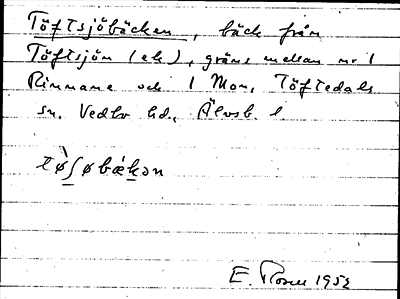 Töftsjöbäcken, bäck från
Töftsjön (ek), gräns mellan nr 1
Rinnane och 1 Mon, Töftedals
sn. Vedbo hd., Älvsb. l
tø̀ʃøbákən
E. 1952